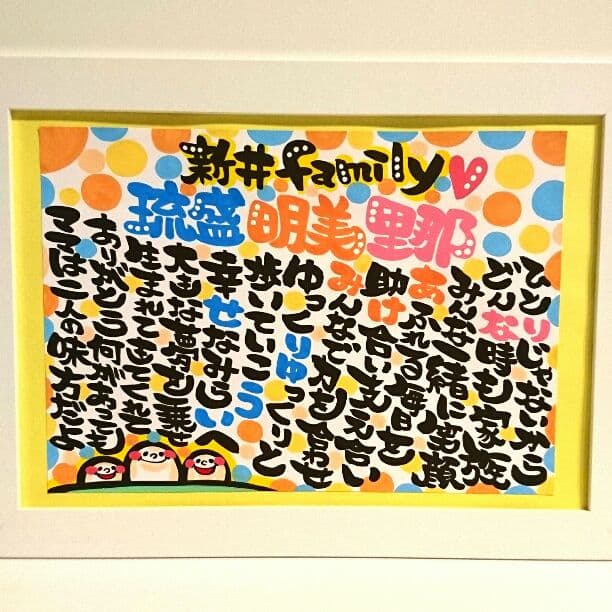 新井family
琉盛 明美 里那
ひとりじゃないから
どんな時も家族
みんな一緒に笑顔
あふれる毎日を
助け合い支え合い
みんなで力を合わせ
ゆっくりゆっくりと
歩いていこう
幸せなみらいへ
大きな夢を乗せ
生まれてきてくれて
ありがとう何があっても
ママは二人の味方だよ